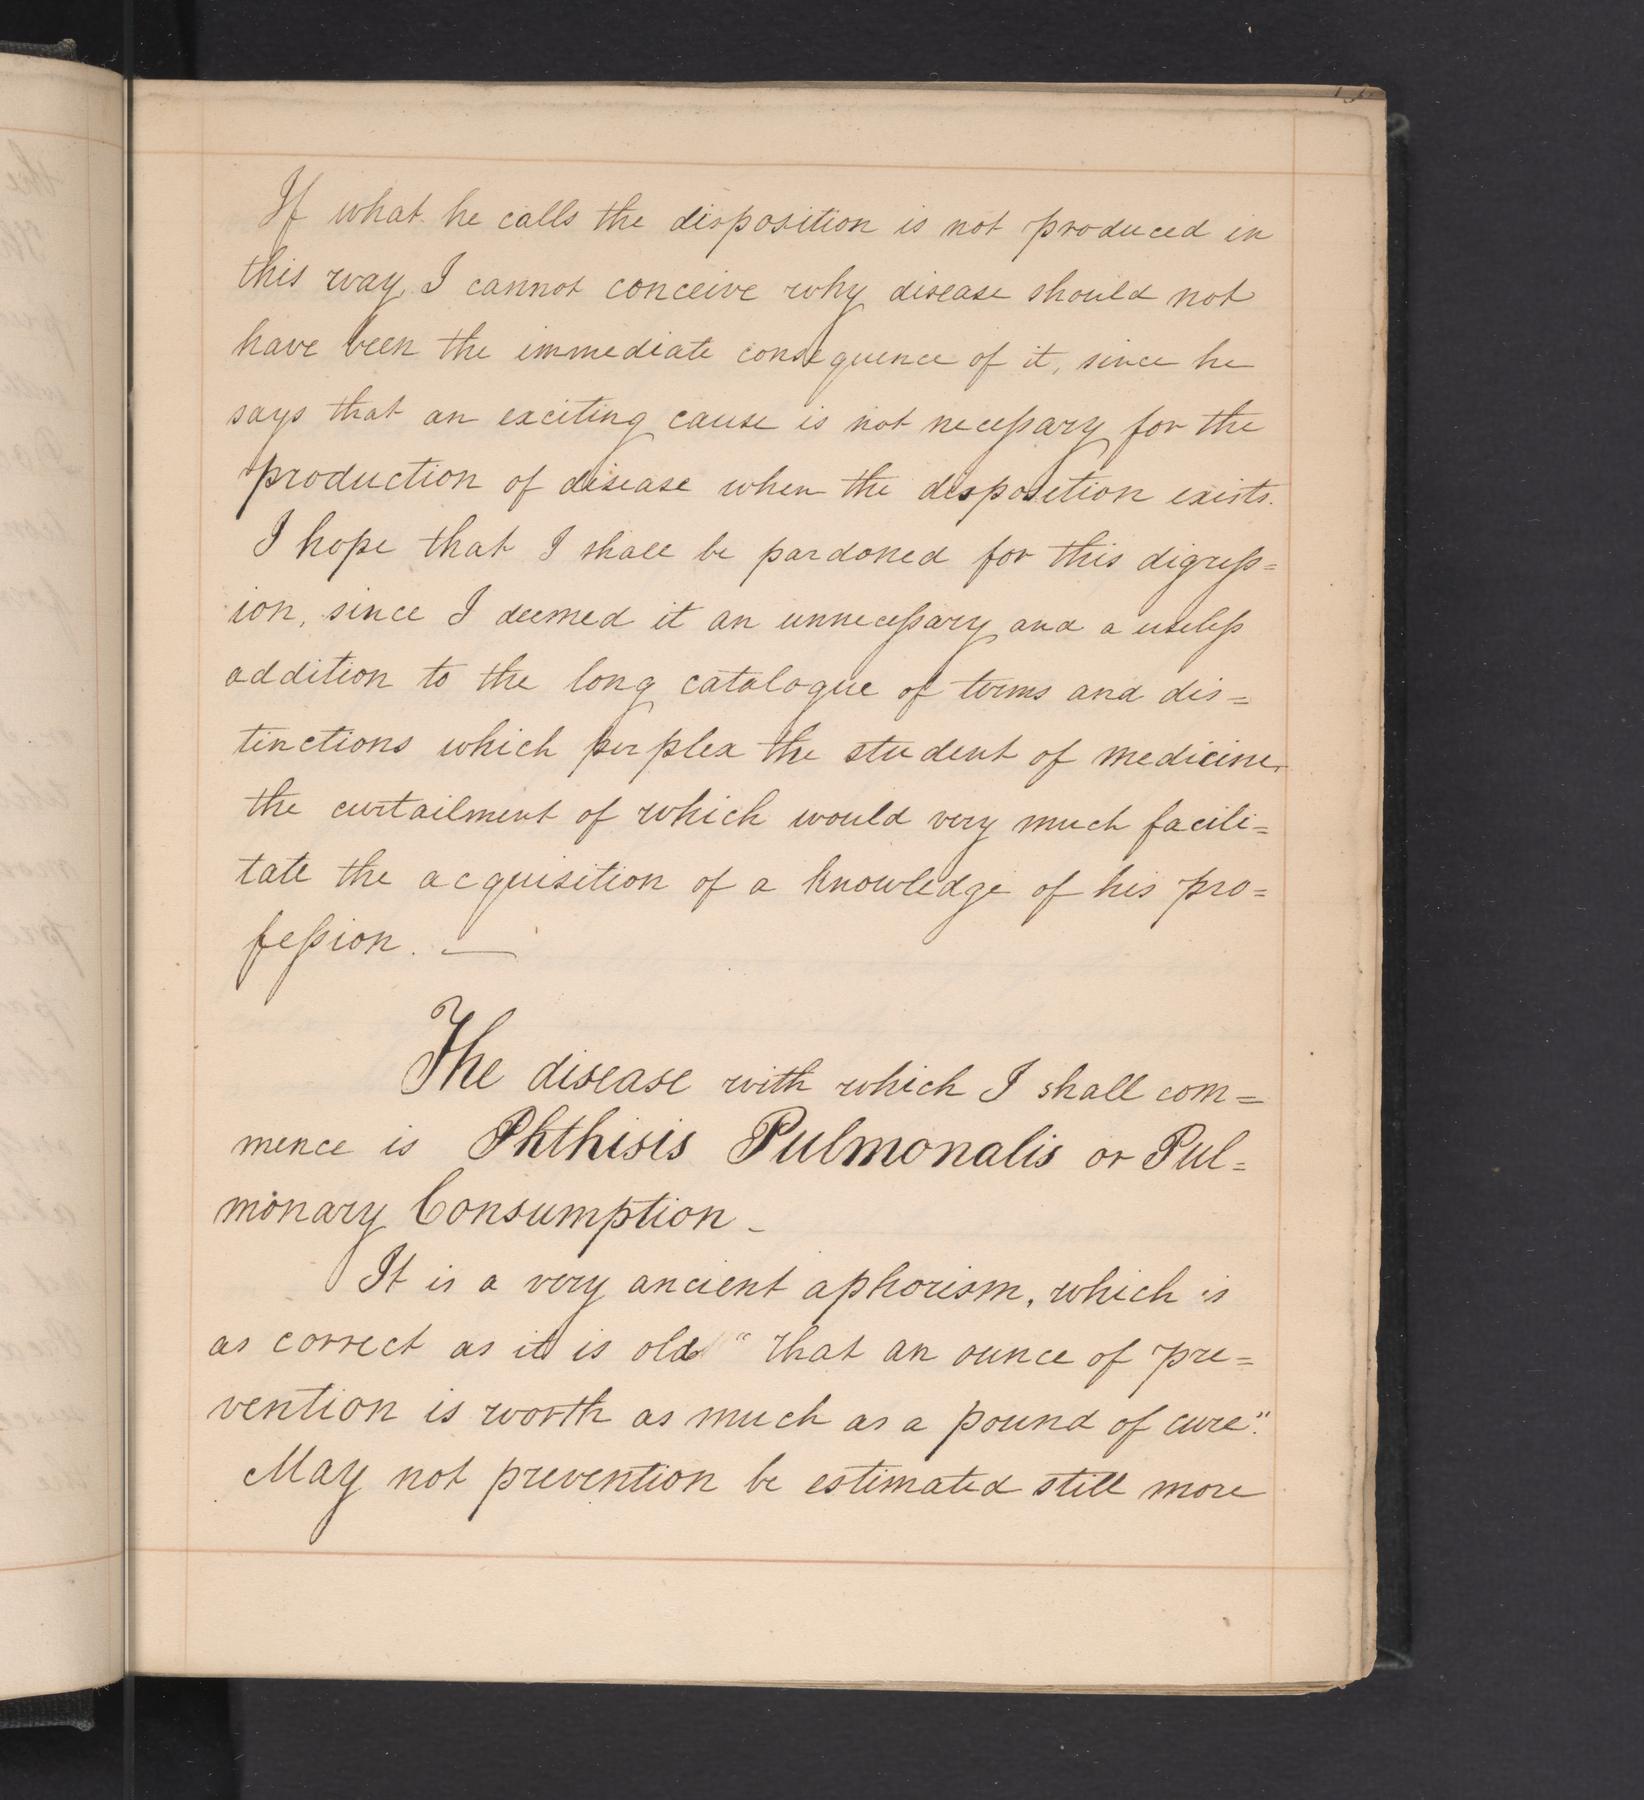 If what he calls the disposition is not produced in
this way, I cannot conceive why disease should not
have been the immediate consequence of it, since he
says that an exciting cause is not necessary for the
production of disease when the disposition exists.
I hope that I shall be pardoned for this digress=
ion, since I deemed it an unnecessary and a useless
addition to the long catalogue of terms and dis=
tinctions which perplex the student of medicine,
the curtailment of which would very much facili=
tate the acquisition of a knowledge of his pro=
fession. —
The disease with which I shall com=
mence is Phthisis Pulmonalis or Pul=
monary Consumption –
It is a very ancient aphorism, which is
as correct as it is old "that an ounce of pre=
vention is worth as much as a pound of cure".
May not prevention be estimated still more